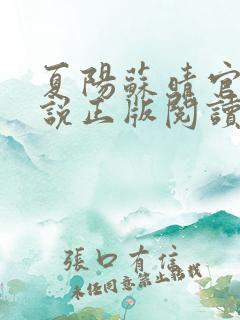 夏陽蘇晴官
說正版閱讀
張口有信
未经同意禁止转载